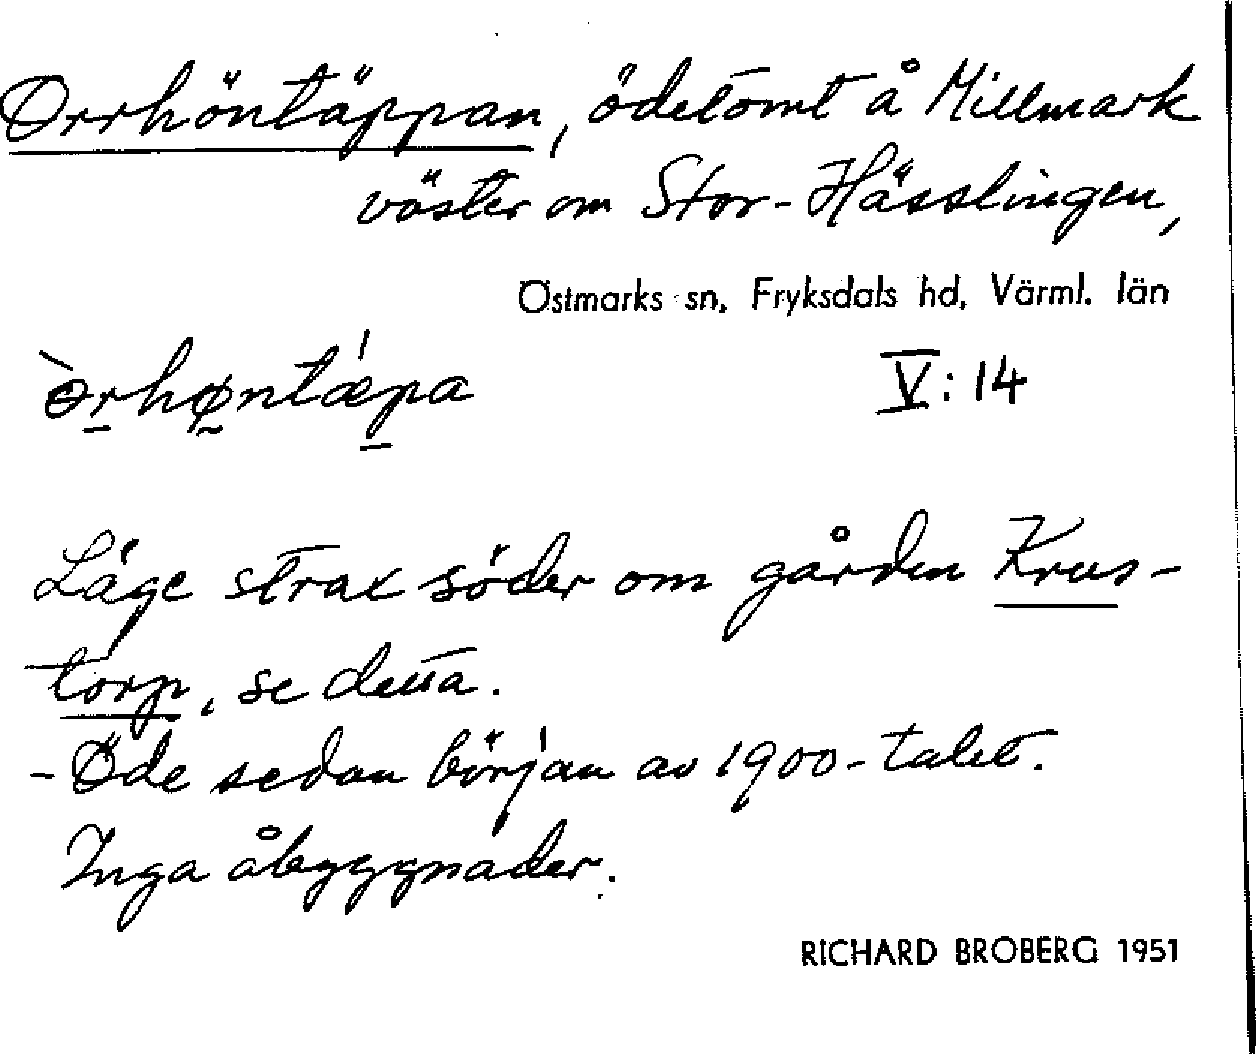 Orrhöntäppan, ödetomt å Millmark
väster om Stor-Hässlingen,
Östmarks sn, Fryksdals hd, Värml. län
V:14
Läge strax söder om gården Krus-
torp, se detta.
- Öde sedan början av 1900-talet.
Inga åbyggnader.
RICHARD BROBERG 1951